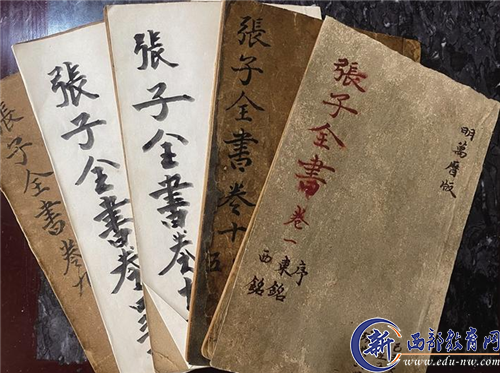 張子全書卷九
張子全書卷
張子全書卷十
張子全書卷十五
張子全書卷一
序
東銘
西銘
明萬曆版
新西部教育网
www.edu-nw.com